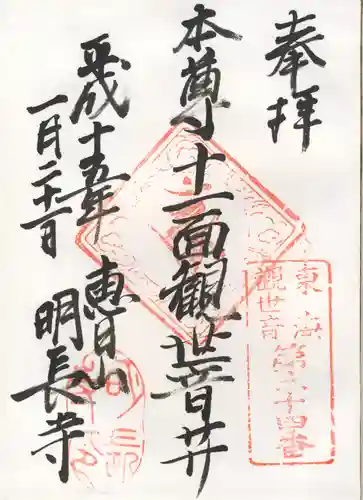 奉拝
東海
観世音
第六十四番
本尊十一面観世音廾
平成十五年
一月二十一日
恵日山
明長寺